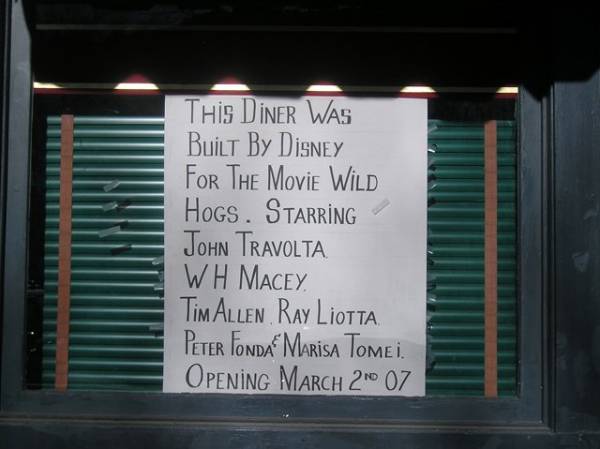 THIS DINER WAS
BUILT BY DISNEY
FOR THE MOVIE WILD
HOGS. STARRING
JOHN TRAVOLTA.
W H MACEY,
TIM ALLEN, RAY LIOTTA.
PETER FONDA & MARISA TOMEI.
OPENING MARCH 2ND 07